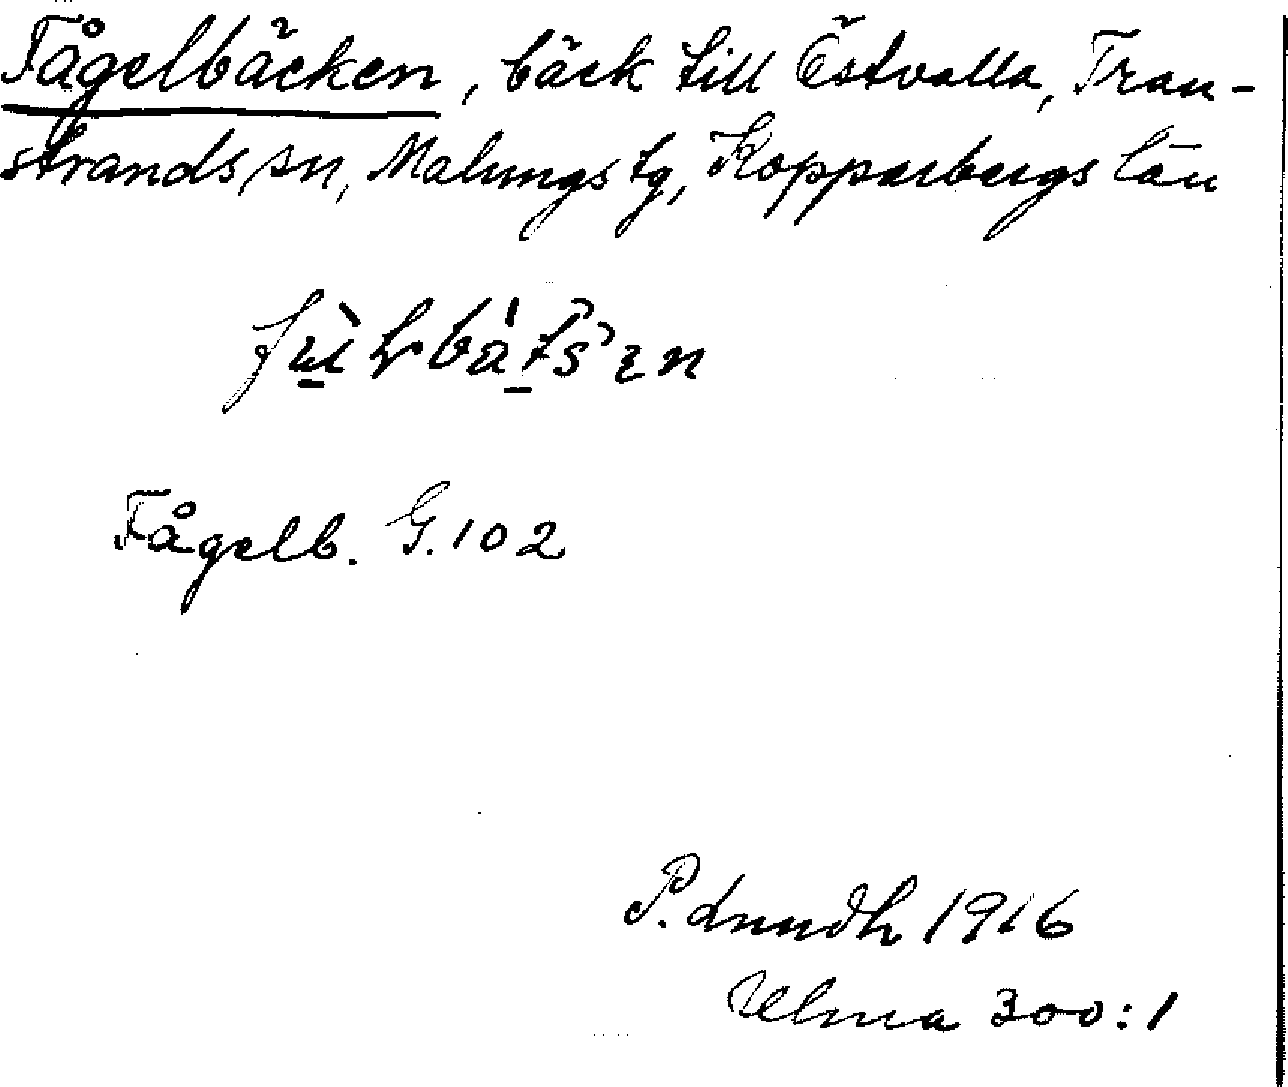 Fågelbäcken, bäck till Östvalla, Tran-
strands sn, Malungs tg, Kopparbergs län
Fågelb. G.102
P. Lundh 1916
Ulma 300:1